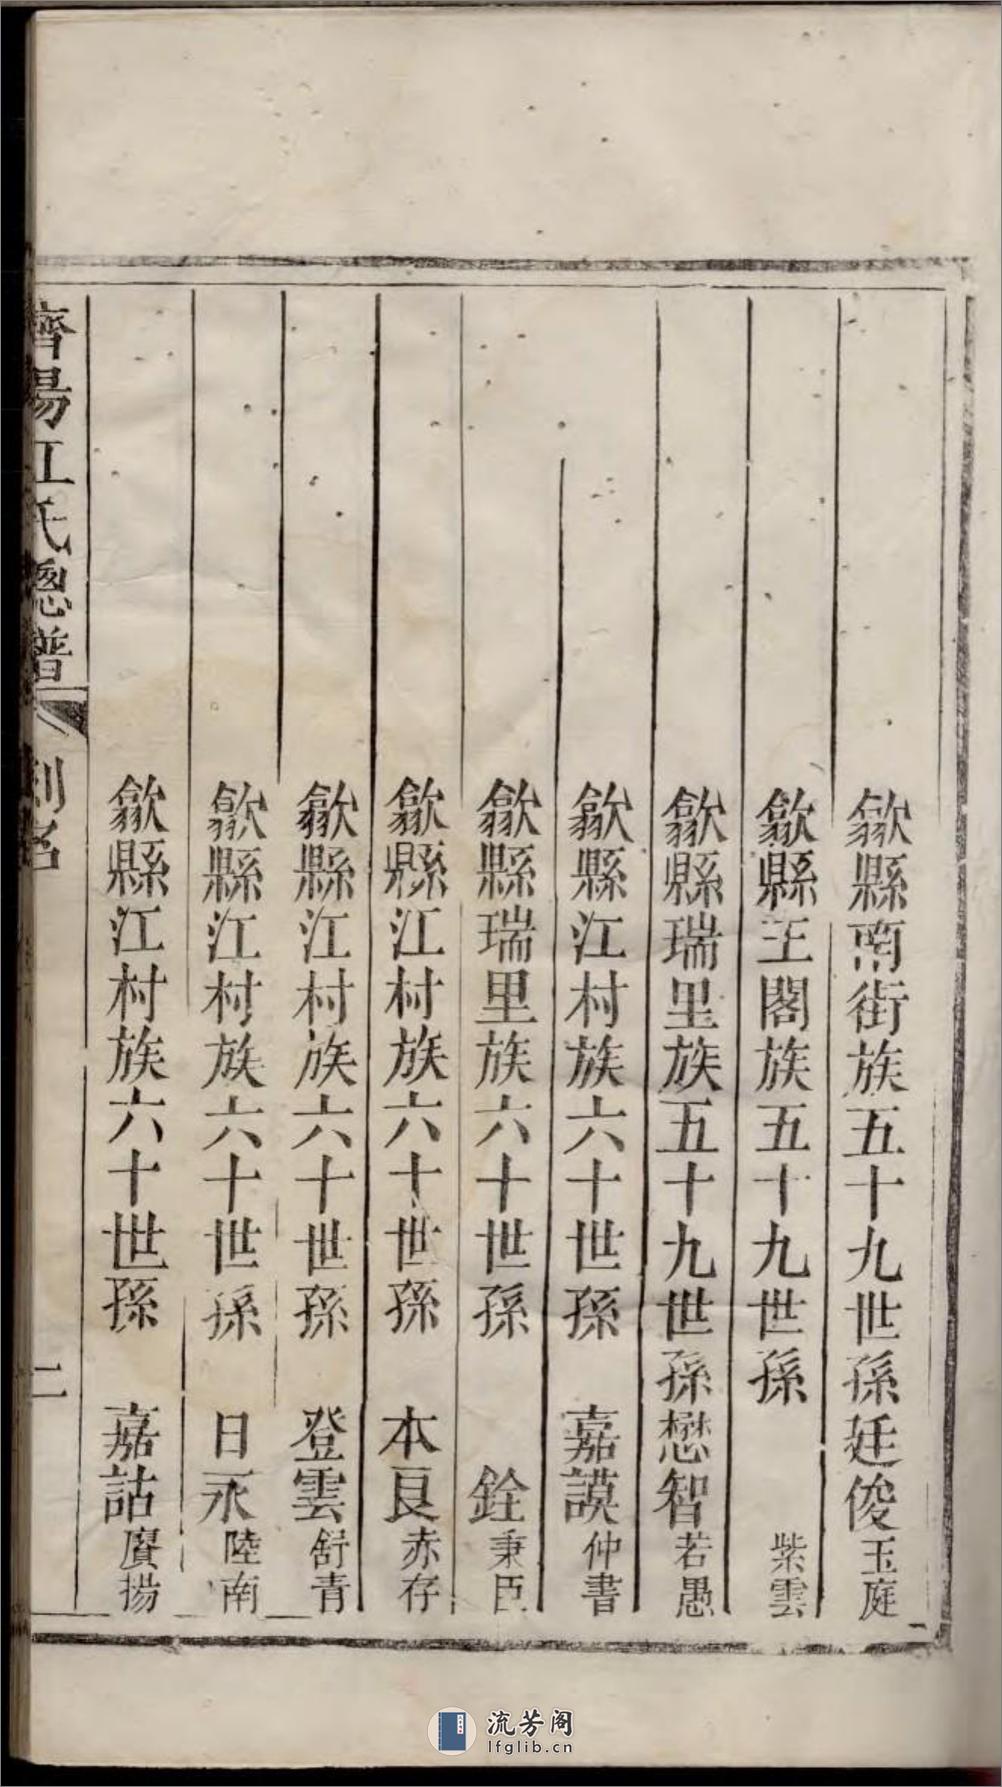 歙縣南街族五十九世孫廷俊玉庭
歙縣王閣族五十九世孫 紫雲
歙縣瑞里族五十九世孫懋智若愚
歙縣江村族六十世孫 嘉謨仲書
歙縣瑞里族六十世孫 銓秉臣
歙縣江村族六十世孫 本良赤存
歙縣江村族六十世孫 登雲舒青
歙縣江村族六十世孫 日永陸南
歙縣江村族六十世孫 嘉詁賡揚
濟陽江氏總譜 列名 二
流芳阁
lfglib.cn